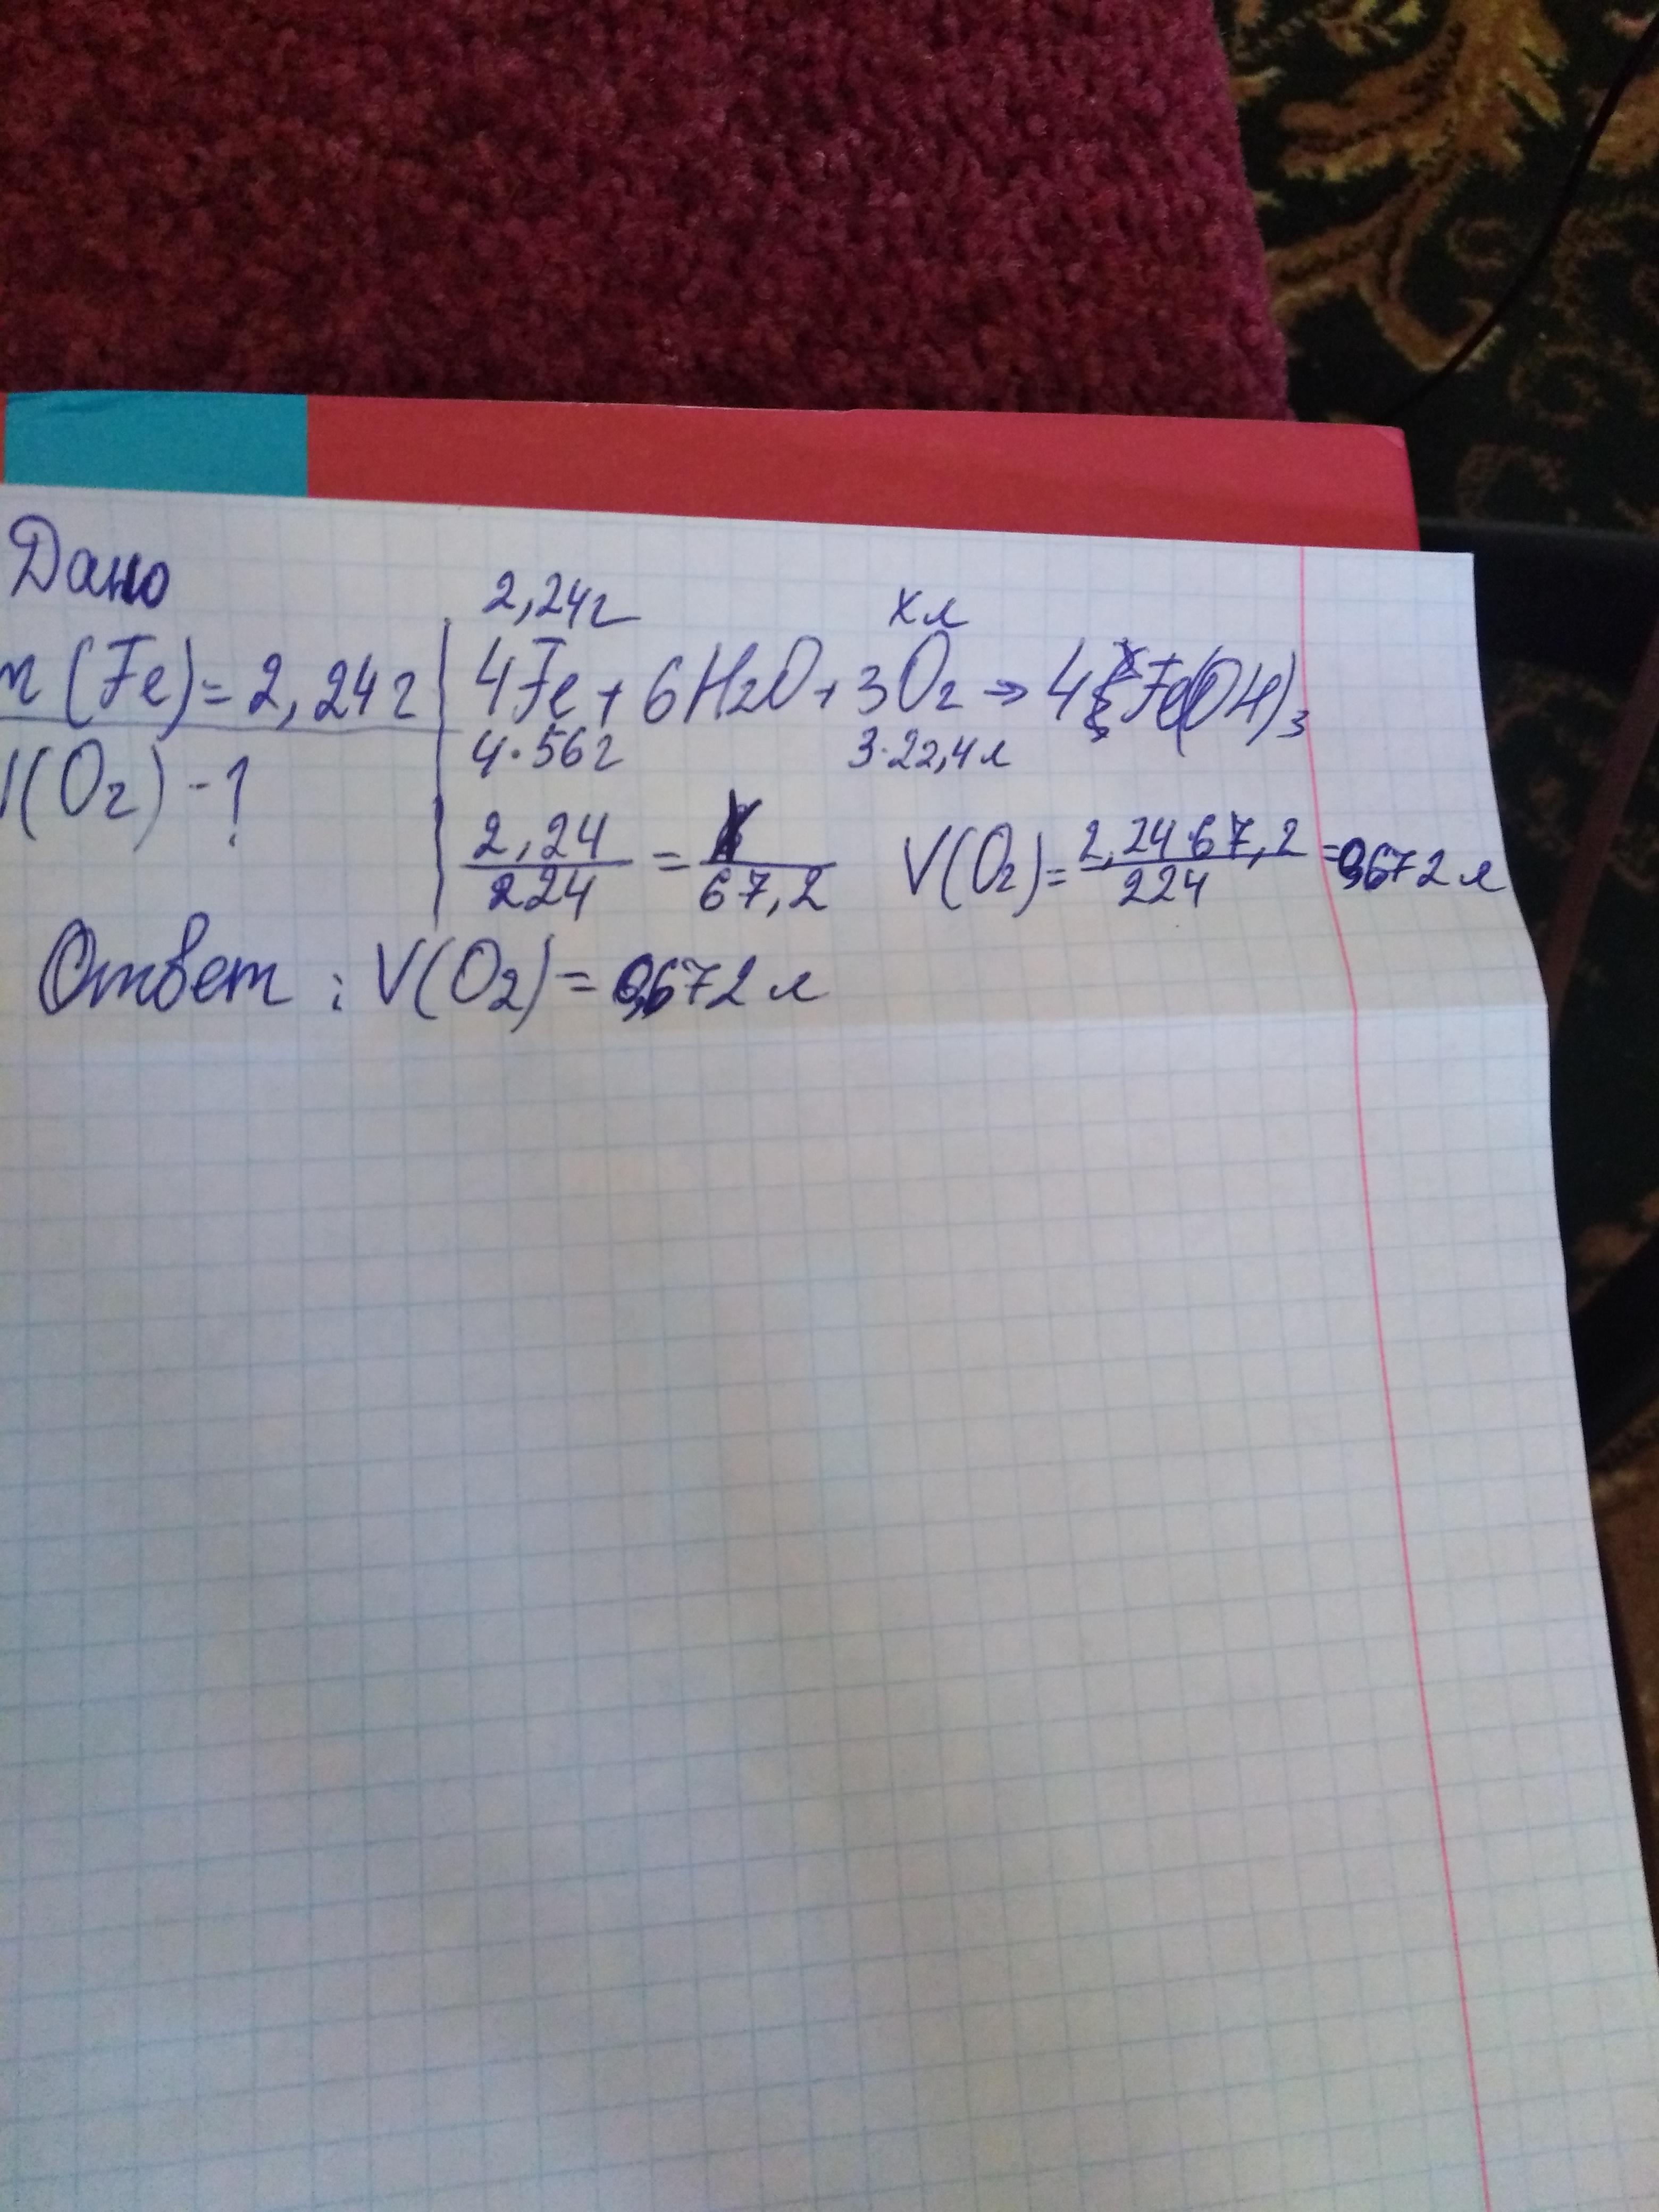 Дано
2,24г xл
m(Fe)=2,24г 4Fe+6H2O+3O2→4Fe(OH)3
4·56г 3·22,4л
V(O2)-?
2,24/224=x/67,2 V(O2)=2,24·67,2/224=0,672л
Ответ: V(O2)=0,672л